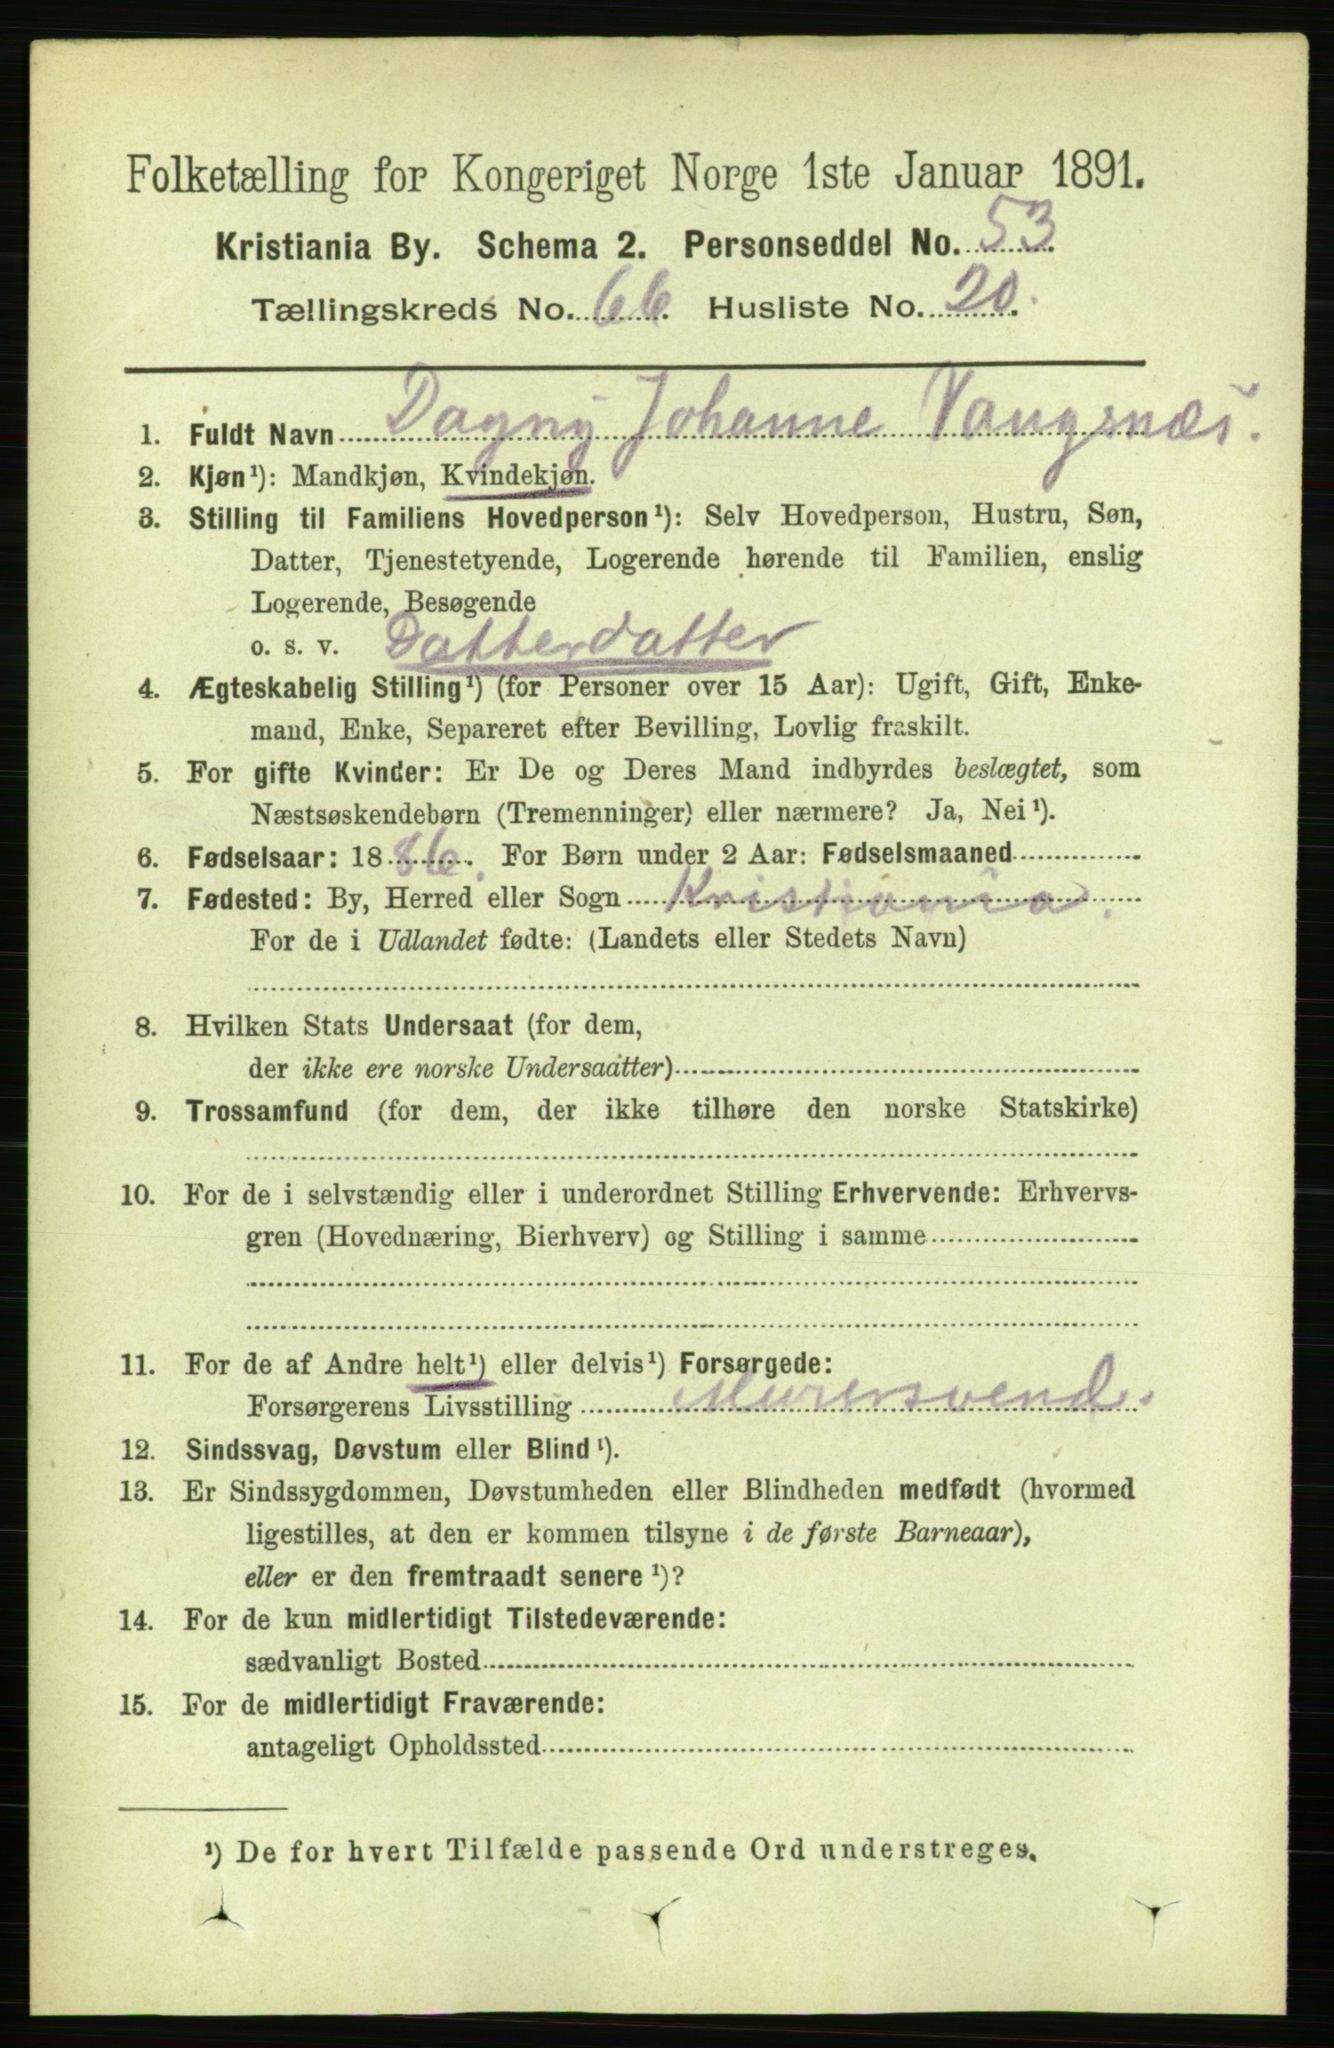 Folketælling for Kongeriget Norge 1ste Januar 1891.
Kristiania By. Schema 2. Personseddel No. 53
Tællingskreds No. 66. Husliste No. 20.
1. Fuldt Navn Dagny Johanne Vangsnæs.
2. Kjøn¹): Mandkjøn, Kvindekjøn.
3. Stilling til Familiens Hovedperson¹): Selv Hovedperson, Hustru, Søn,
Datter, Tjenestetyende, Logerende hørende til Familien, enslig
Logerende, Besøgende
o. s. v. Datterdatter
4. Ægteskabelig Stilling¹) (for Personer over 15 Aar): Ugift, Gift, Enke-
mand, Enke, Separeret efter Bevilling, Lovlig fraskilt.
5. For gifte Kvinder: Er De og Deres Mand indbyrdes beslægtet, som
Næstsøskendebørn (Tremenninger) eller nærmere? Ja, Nei¹).
6. Fødselsaar: 1886. For Børn under 2 Aar: Fødselsmaaned
7. Fødested: By, Herred eller Sogn Kristiania.
For de i Udlandet fødte: (Landets eller Stedets Navn)
8. Hvilken Stats Undersaat (for dem,
der ikke ere norske Undersaatter)
9. Trossamfund (for dem, der ikke tilhøre den norske Statskirke)
10. For de i selvstændig eller i underordnet Stilling Erhvervende: Erhvervs-
gren (Hovednæring, Bierhverv) og Stilling i samme
11. For de af Andre helt¹) eller delvis¹) Forsørgede:
Forsørgerens Livsstilling Murersvend.
12. Sindssvag, Døvstum eller Blind¹).
13. Er Sindssygdommen, Døvstumheden eller Blindheden medfødt (hvormed
ligestilles, at den er kommen tilsyne i de første Barneaar),
eller er den fremtraadt senere¹)?
14. For de kun midlertidigt Tilstedeværende:
sædvanligt Bosted
15. For de midlertidigt Fraværende:
antageligt Opholdssted
¹) De for hvert Tilfælde passende Ord understreges.